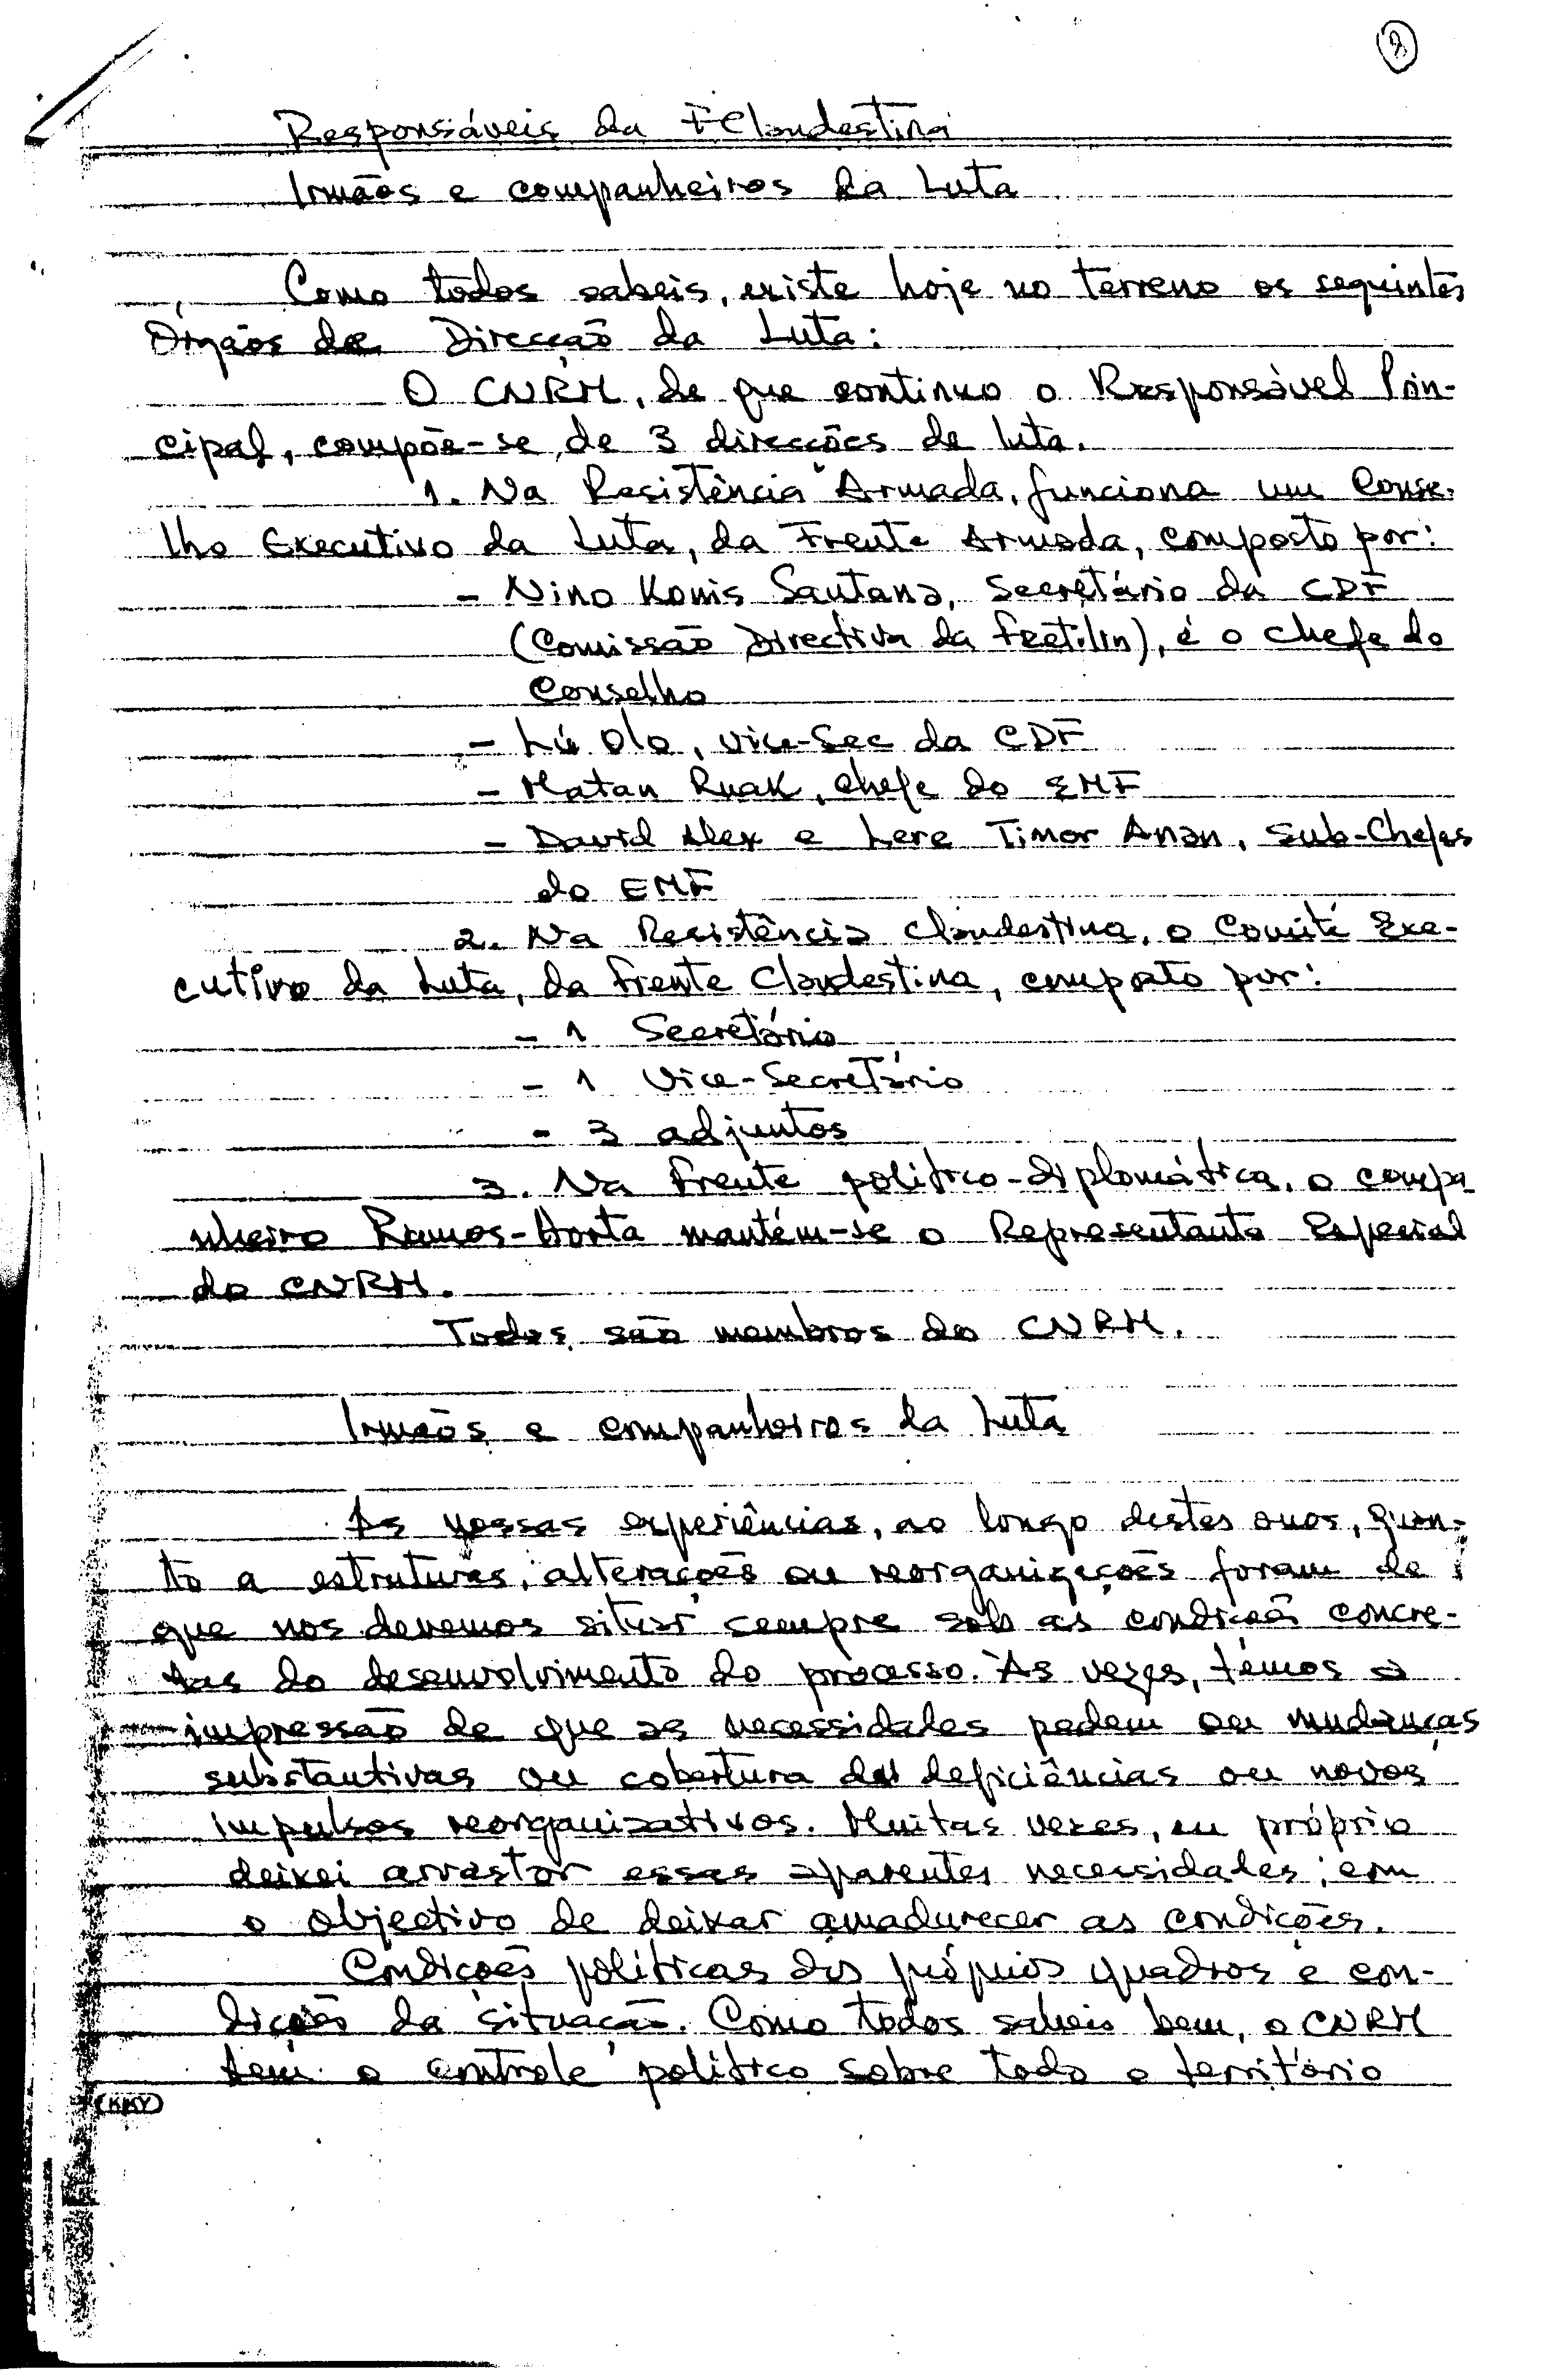 Responsáveis da FClandestina
Irmãos e companheiros da Luta
Como todos sabeis, existe hoje no terreno os seguintes
Órgãos de Direcção da Luta:
O CNRM, de que continuo o Responsável Prin-
cipal, compõe-se de 3 direcções de luta.
1. Na Resistência Armada, funciona um Conse-
lho Executivo da Luta, da Frente Armada, composto por:
- Nino Konis Santana, Secretário da CDF
(Comissão Directiva da Fretilin), é o chefe do
Conselho
- Lú Olo, vice-Sec da CDF
- Matan Ruak, chefe do EMF
- David Alex e Lere Timor Anan, Sub-Chefes
do EMF
2. Na Resistência Clandestina, o Comité Exe-
cutivo da Luta, da Frente Clandestina, composto por:
- 1 Secretário
- 1 Vice-Secretário
- 3 adjuntos
3. Na Frente político-diplomática, o compa
nheiro Ramos-Horta mantém-se o Representante Especial
do CNRM.
Todos são membros do CNRM.
Irmãos e companheiros da Luta
As nossas experiências, ao longo destes anos, quan-
to a estruturas, alterações ou reorganizações foram de
que nos devemos situar sempre sob as condições concre-
tas do desenvolvimento do processo. Às vezes, temos a
impressão de que as necessidades pedem ou mudanças
substantivas ou cobertura das deficiências ou novos
impulsos reorganizativos. Muitas vezes, eu próprio
deixei arrastar essas aparentes necessidades, com
o objectivo de deixar amadurecer as condições.
Condições políticas dos próprios quadros e con-
dições da situação. Como todos sabeis bem, o CNRM
tem o controle político sobre todo o território